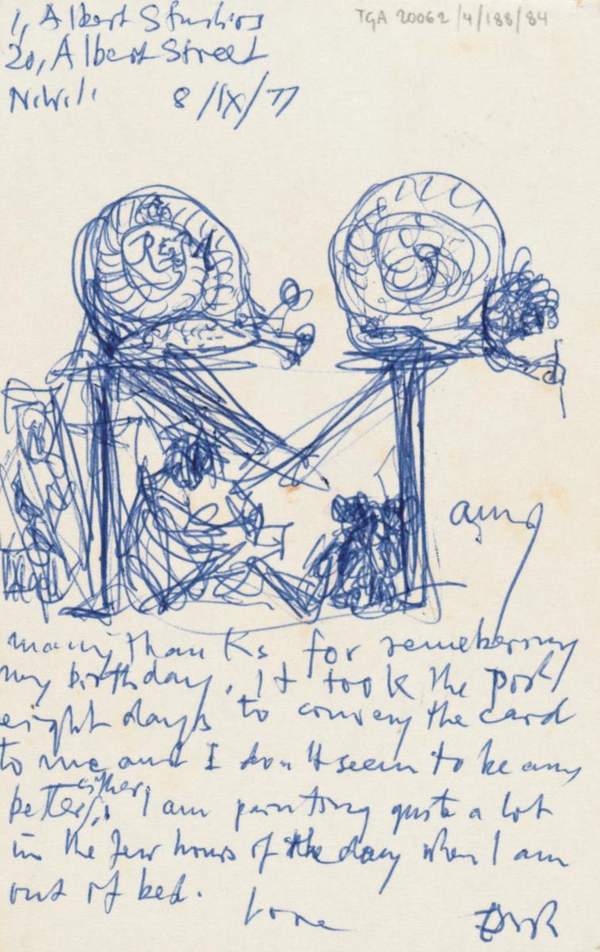 1, Albert Studios
TGA 20062/4/188/84
20, Albert Street
8/IX/77
amy
many thanks for remebering
my birthday. It took the post
eight days to convey the card
to me and I don't seem to be any
better either, I am painting quite a lot
in the few hours of the day when I am
out of bed.
love